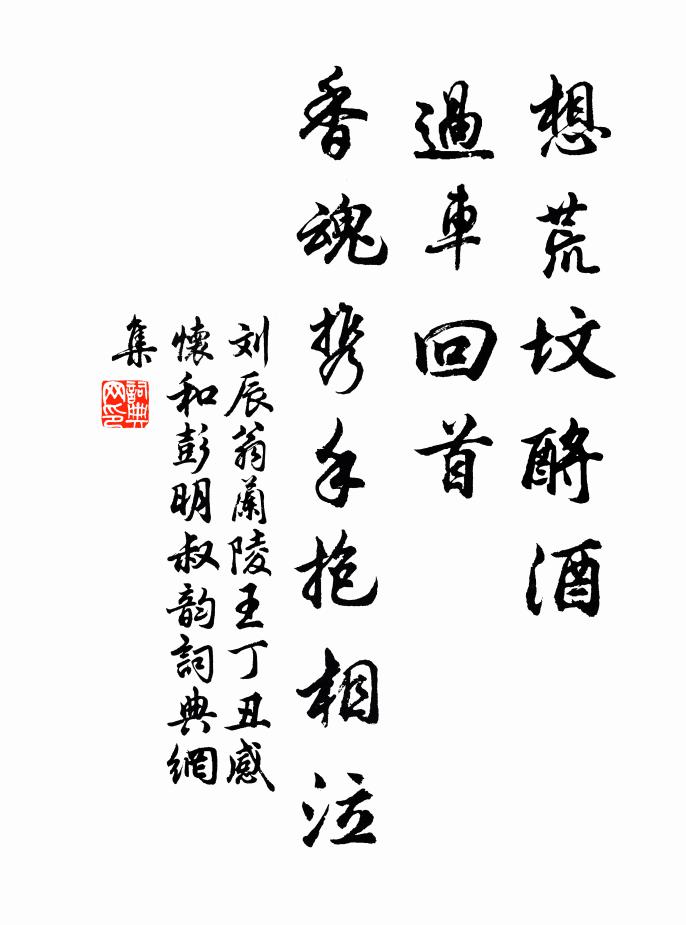 想荒坟酹酒
過車回首
香魂携手抱相泣
刘辰翁蘭陵王丁丑感
懷和彭明叔韵詞典網
集
詞典
网印